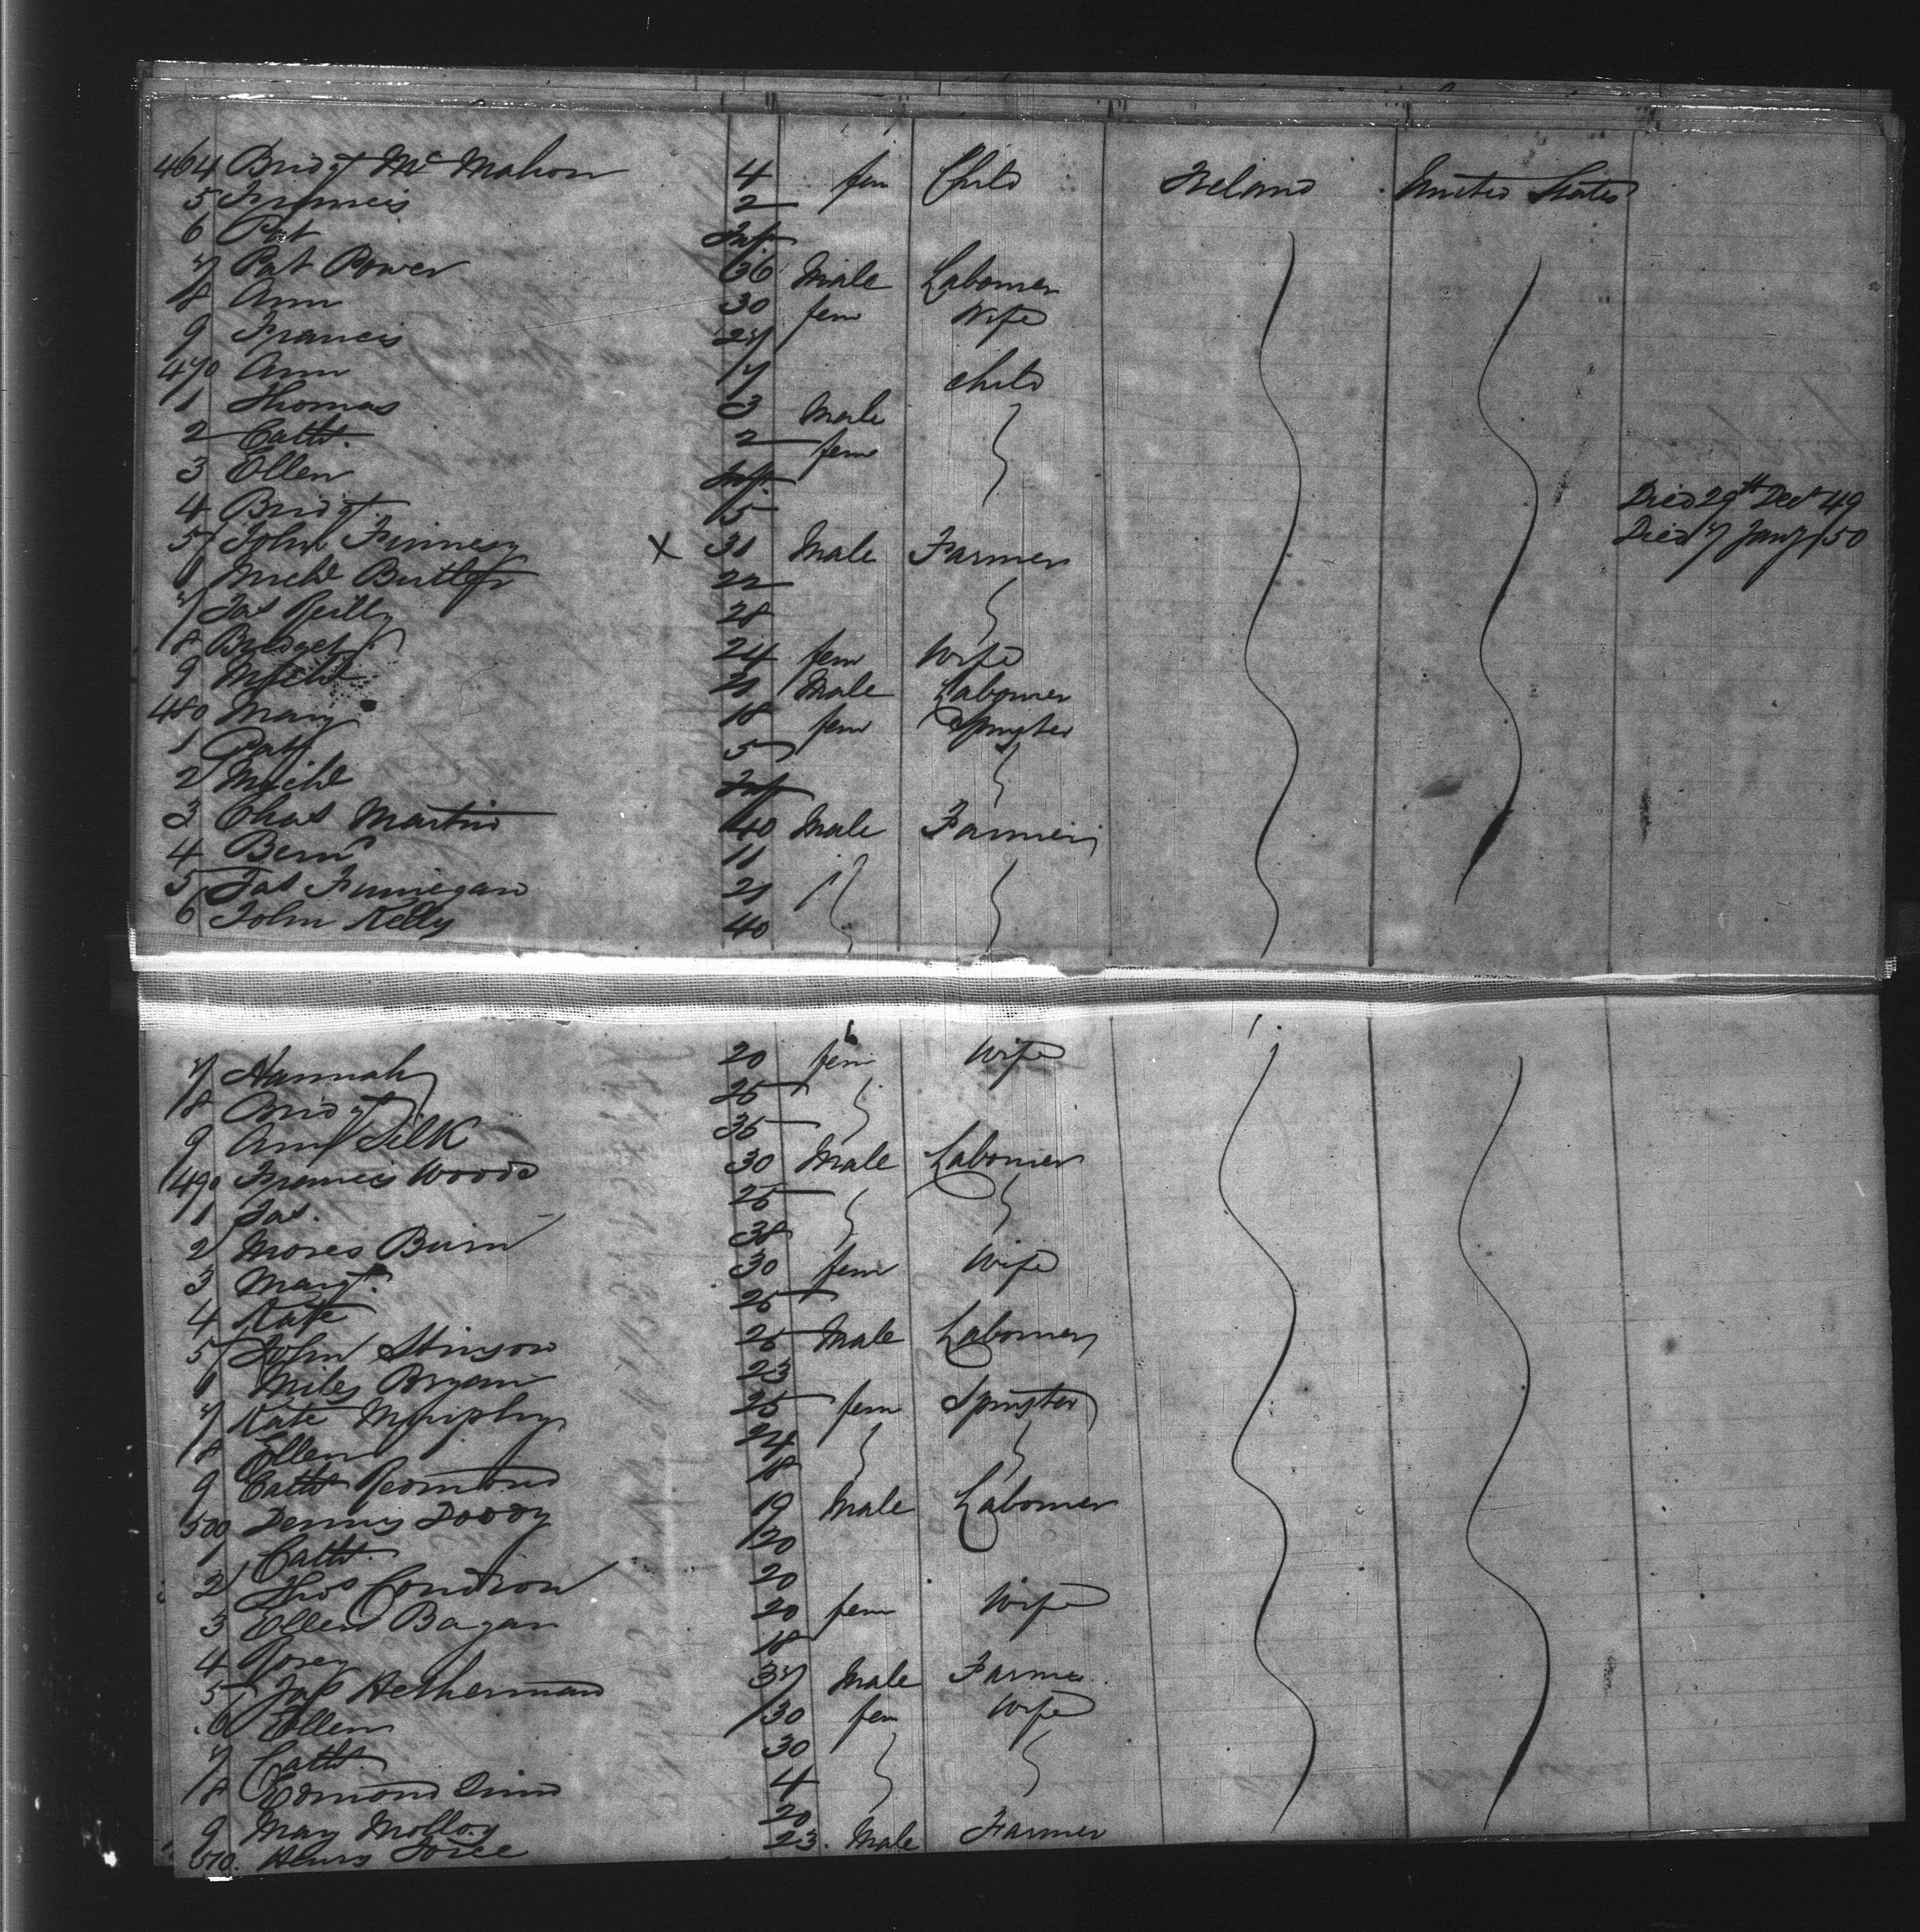 464 Bridgt McMahon 4 fem Child Ireland United States
5 Francis 2
6 Pat Inft
7 Pat Power 36 Male Labourer
8 Ann 30 fem Wife
9 Francis 27
470 Ann 7 Child
1 Thomas 3 Male
2 Cathe. 2 fem
3 Ellen Inft
4 Bridgt 5 Died 29th Decr 49
5 John Finnesy X 31 Male Farmer Died 7 Jany 50
6 Michl Butler 22
7 Jas Reilly 28
8 Bridget 24 fem Wife
9 Michl 21 Male Labourer
480 Mary 18 fem Spinster
1 Pat 5
2 Michl Inft
3 Chas Martin 40 Male Farmer
4 Bernd 11
5 Jas Finnegan 21
6 John Kelly 40
7 Hannah 20 fem Wife
8 Bridgt 25
9 Ann Silk 35
490 Francis Woods 30 Male Labourer
1 Jas. 25
2 Moses Burn 38
3 Margt. 30 fem Wife
4 Kate 25
5 John Stinson 25 Male Labourer
6 Miles Bryan 23
7 Kate Murphy 25 fem Spinster
8 Ellen 24
9 Cathe Redmond 18
500 Dennis Doody 19 Male Labourer
1 Cathe. 20
2 Thos Condron 20
3 Ellen Bagan 20 fem Wife
4 Rosey 18
5 Jas Hetherman 37 Male Farmer
6 Ellen 30 fem Wife
7 Cathe. 30
8 Edmond Quin 4
9 Mary Molloy 20
510. Henry Joice 23. Male Farmer